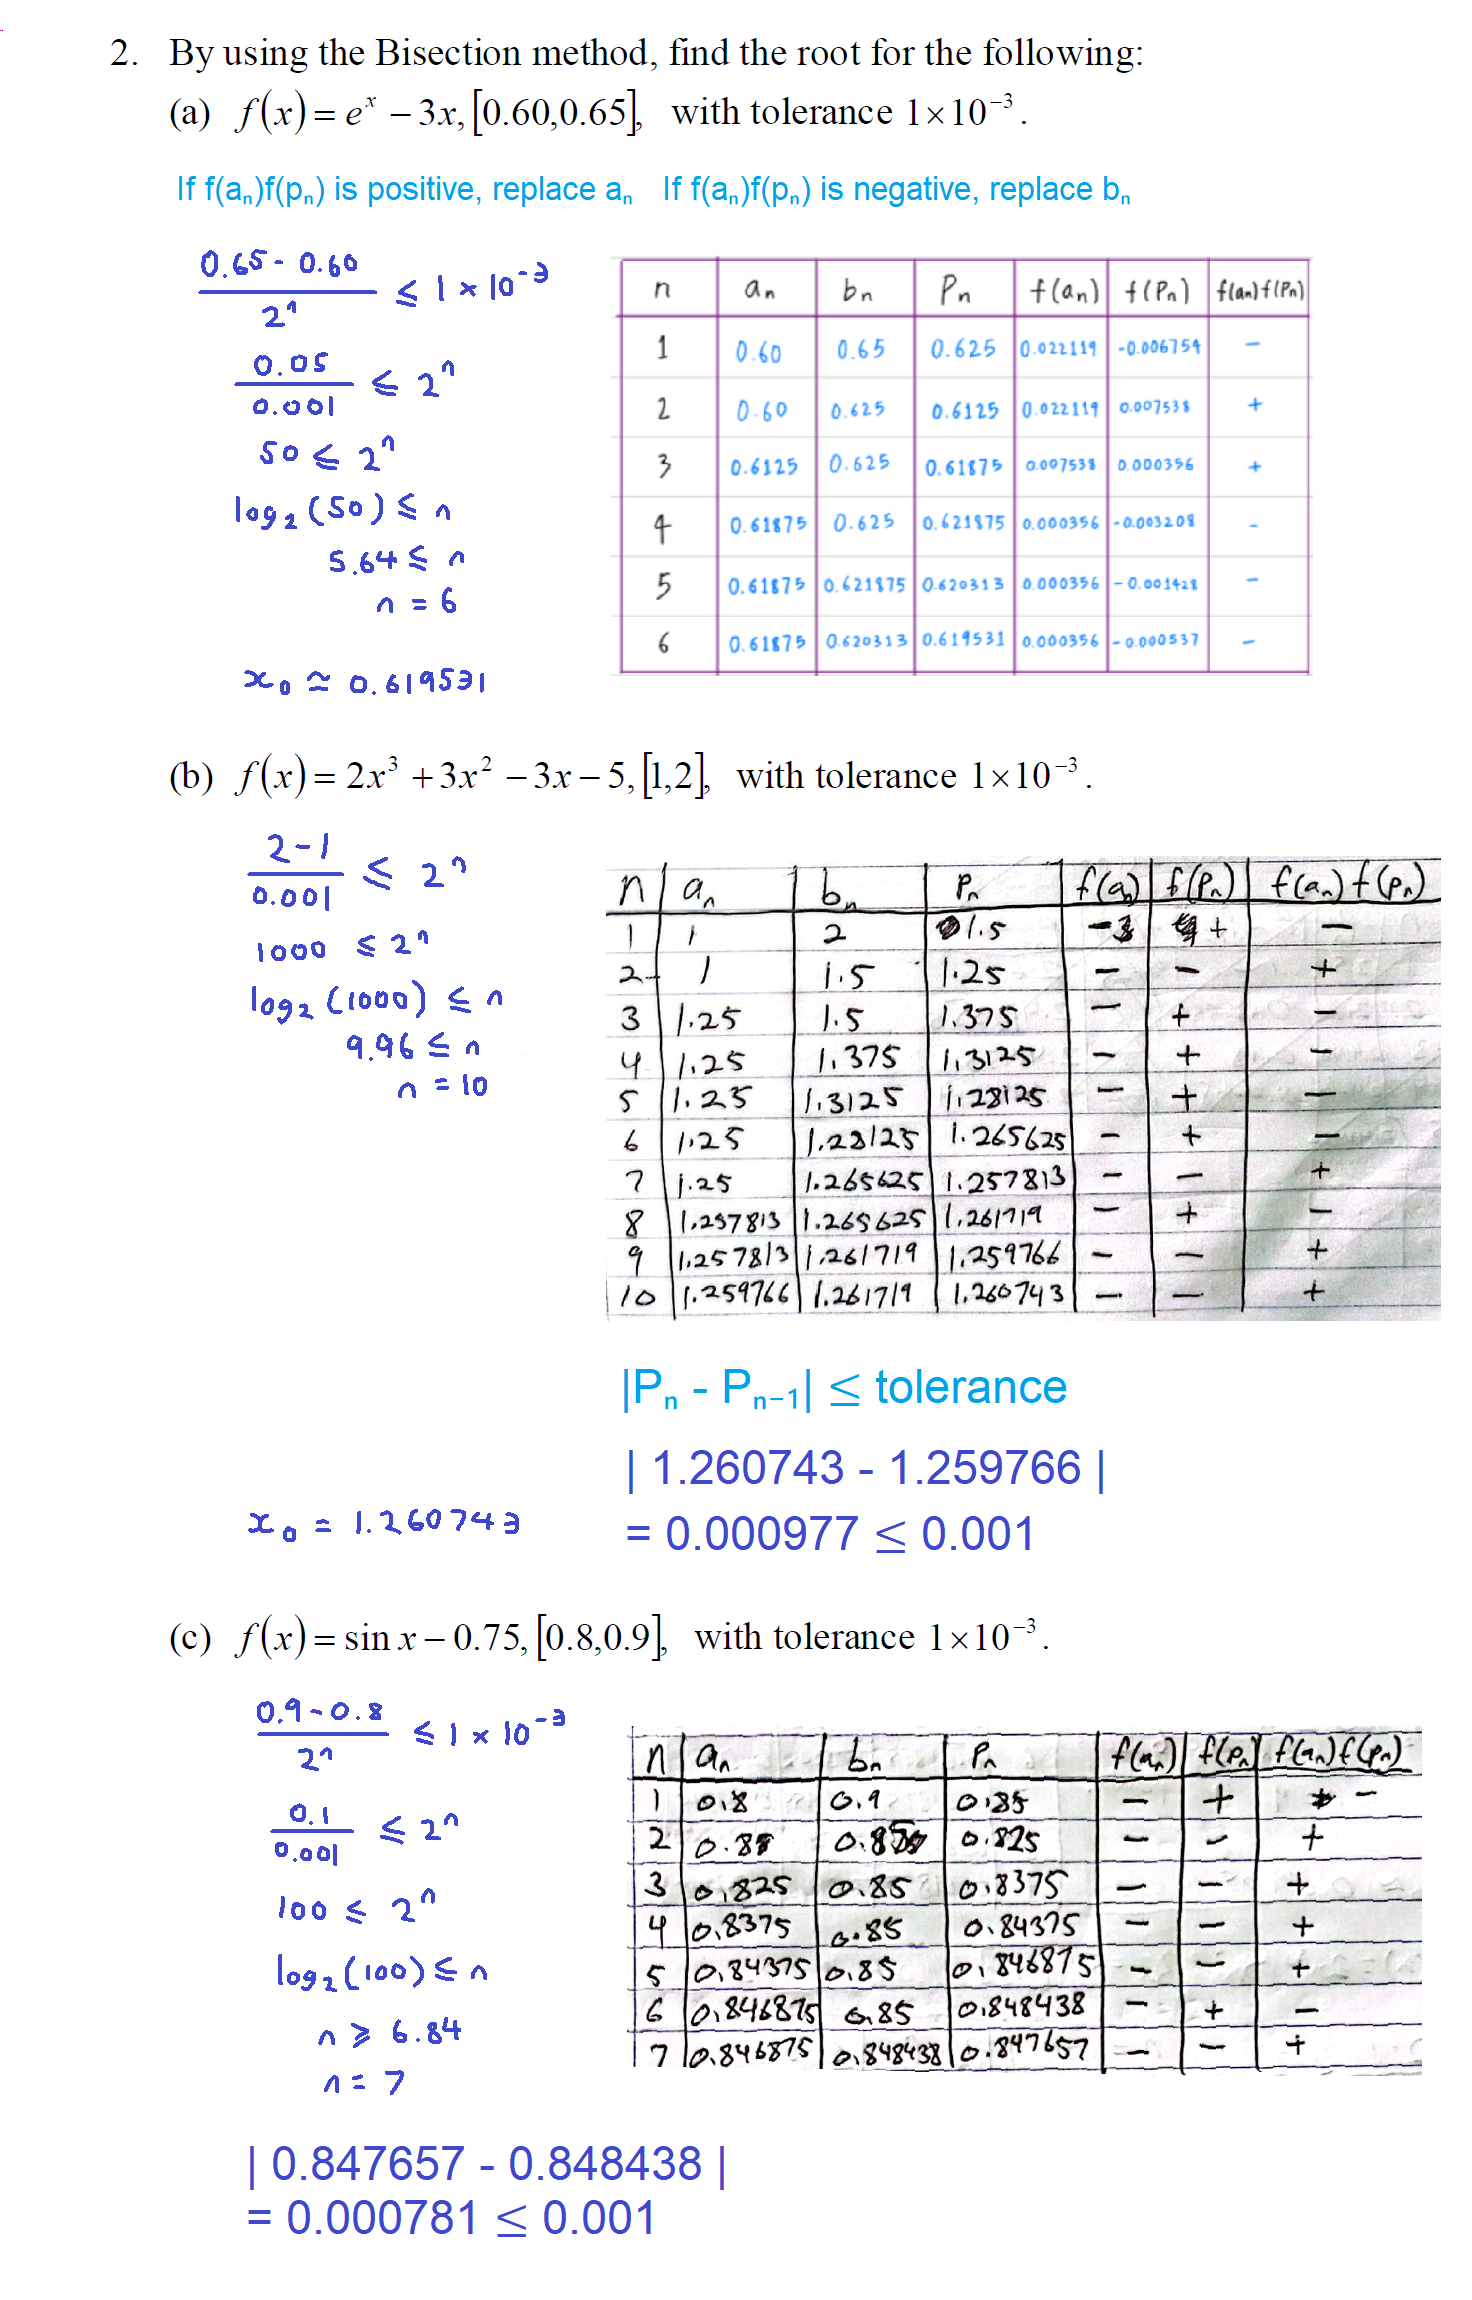 2. By using the Bisection method, find the root for the following:
(a) f(x) = eˣ − 3x, [0.60,0.65], with tolerance 1×10⁻³.
If f(aₙ)f(pₙ) is positive, replace aₙ If f(aₙ)f(pₙ) is negative, replace bₙ
0.65 - 0.60 / 2ⁿ ≤ 1 × 10⁻³
0.05 / 0.001 ≤ 2ⁿ
50 ≤ 2ⁿ
log₂(50) ≤ n
5.64 ≤ n
n = 6
x₀ ≈ 0.619531
n aₙ bₙ Pₙ f(aₙ) f(Pₙ) f(aₙ)f(Pₙ)
1 0.60 0.65 0.625 0.022119 -0.006754 -
2 0.60 0.625 0.6125 0.022119 0.007538 +
3 0.6125 0.625 0.61875 0.007538 0.000356 +
4 0.61875 0.625 0.621875 0.000356 -0.003208 -
5 0.61875 0.621875 0.620313 0.000356 -0.001428 -
6 0.61875 0.620313 0.619531 0.000356 -0.000537 -
(b) f(x) = 2x³ + 3x² − 3x − 5, [1,2], with tolerance 1×10⁻³.
2-1 / 0.001 ≤ 2ⁿ
1000 ≤ 2ⁿ
log₂(1000) ≤ n
9.96 ≤ n
n = 10
n aₙ bₙ Pₙ f(aₙ) f(Pₙ) f(aₙ)f(Pₙ)
1 1 2 1.5 - + -
2 1 1.5 1.25 - - +
3 1.25 1.5 1.375 - + -
4 1.25 1.375 1.3125 - + -
5 1.25 1.3125 1.28125 - + -
6 1.25 1.28125 1.265625 - + -
7 1.25 1.265625 1.257813 - - +
8 1.257813 1.265625 1.261719 - + -
9 1.257813 1.261719 1.259766 - - +
10 1.259766 1.261719 1.260743 - - +
|Pₙ - Pₙ₋₁| ≤ tolerance
| 1.260743 - 1.259766 |
= 0.000977 ≤ 0.001
x₀ = 1.260743
(c) f(x) = sin x − 0.75, [0.8,0.9], with tolerance 1×10⁻³.
0.9-0.8 / 2ⁿ ≤ 1 × 10⁻³
0.1 / 0.001 ≤ 2ⁿ
100 ≤ 2ⁿ
log₂(100) ≤ n
n ≥ 6.84
n = 7
n aₙ bₙ Pₙ f(aₙ) f(Pₙ) f(aₙ)f(Pₙ)
1 0.8 0.9 0.85 - + -
2 0.8 0.85 0.825 - - +
3 0.825 0.85 0.8375 - - +
4 0.8375 0.85 0.84375 - - +
5 0.84375 0.85 0.846875 - - +
6 0.846875 0.85 0.848438 - + -
7 0.846875 0.848438 0.847657 - - +
| 0.847657 - 0.848438 |
= 0.000781 ≤ 0.001